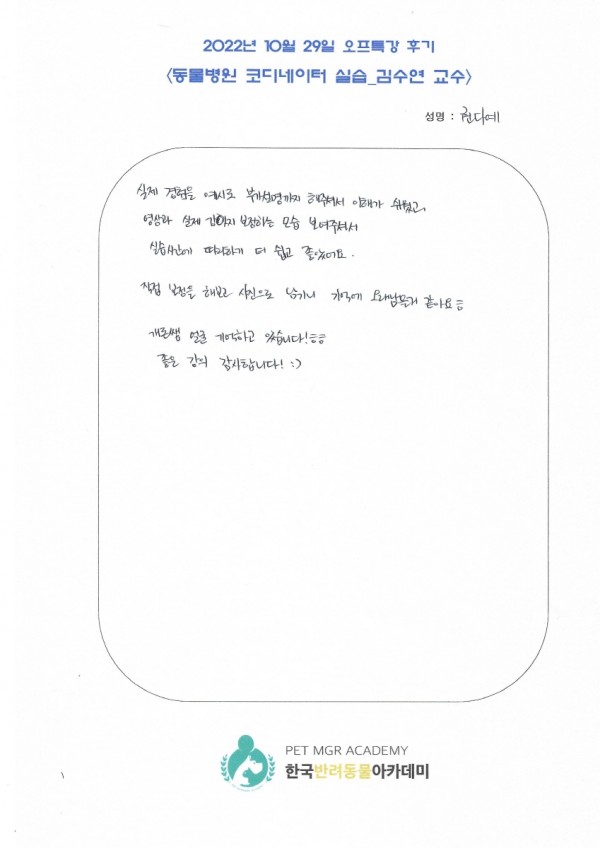 2022년 10월 29일 오프특강 후기
<동물병원 코디네이터 실습_김수연 교수>
성명 : 권다예
실제 경험을 예시로 부가설명까지 해주셔서 이해가 쉬웠고,
영상과 실제 보정하는 모습 보여주셔서
실습시간에 따라하기 더 쉽고 좋았어요.
직접 보정을 해보고 사진으로 남기니 기억에 오래남을거 같아요ㅎ
얼굴 기억하고 있습니다!ㅎㅎ
좋은 강의 감사합니다! :)
PET MGR ACADEMY
한국반려동물아카데미